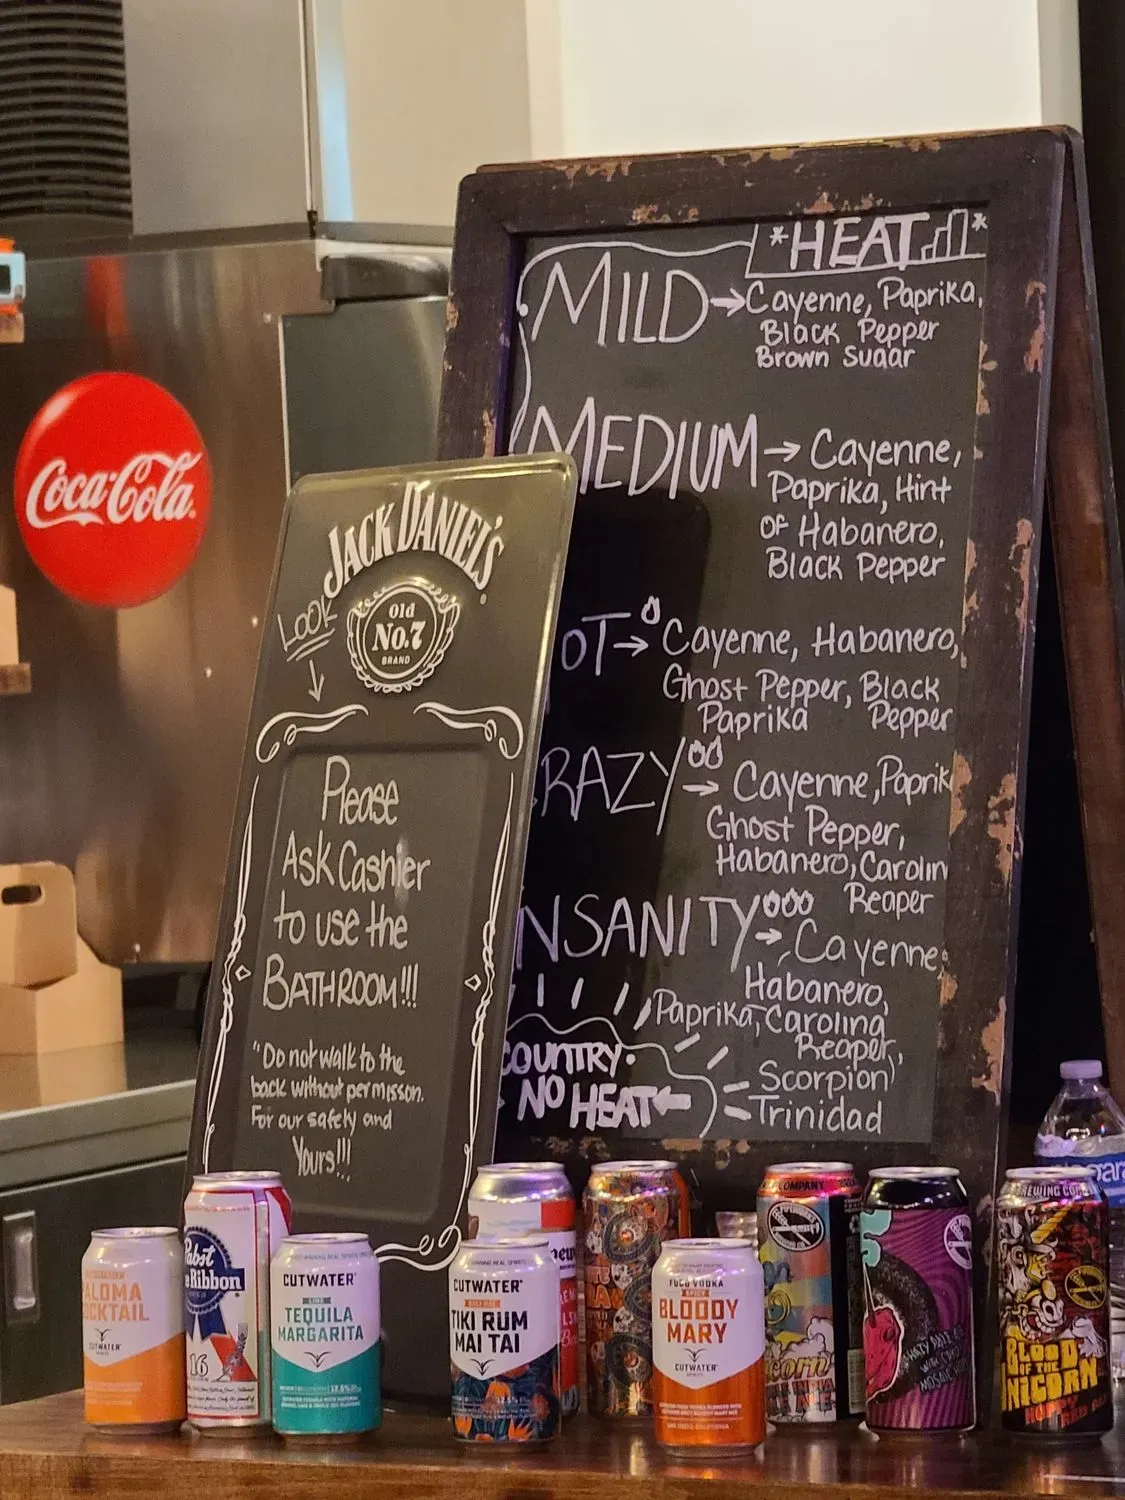 *HEAT*
MILD → Cayenne, Paprika,
Black Pepper
Brown Sugar
MEDIUM → Cayenne,
Paprika, Hint
of Habanero,
Black Pepper
OT → Cayenne, Habanero,
Ghost Pepper, Black
Paprika Pepper
RAZY → Cayenne, Paprik
Ghost Pepper,
Habanero, Carolin
Reaper
NSANITY → Cayenne,
Habanero,
Paprika, Carolina
Reaper,
Scorpion
Trinidad
COUNTRY
NO HEAT ←
Coca-Cola
JACK DANIEL'S
Old
No.7
BRAND
LOOK
Please
ASK Cashier
to use the
BATHROOM!!!
"Do not walk to the
back without permisson.
For our safety and
Yours!!!
ALOMA
CKTAIL
CUTWATER
Pabst
Ribbon
16
CUTWATER
LIME
TEQUILA
MARGARITA
CUTWATER
TIKI RUM
MAI TAI
VODKA
SPICY
BLOODY
MARY
CUTWATER
COMPANY
corn
HAZY DATE
BREWING CO
BLOOD
OF THE
UNICORN
HOPPY
RED